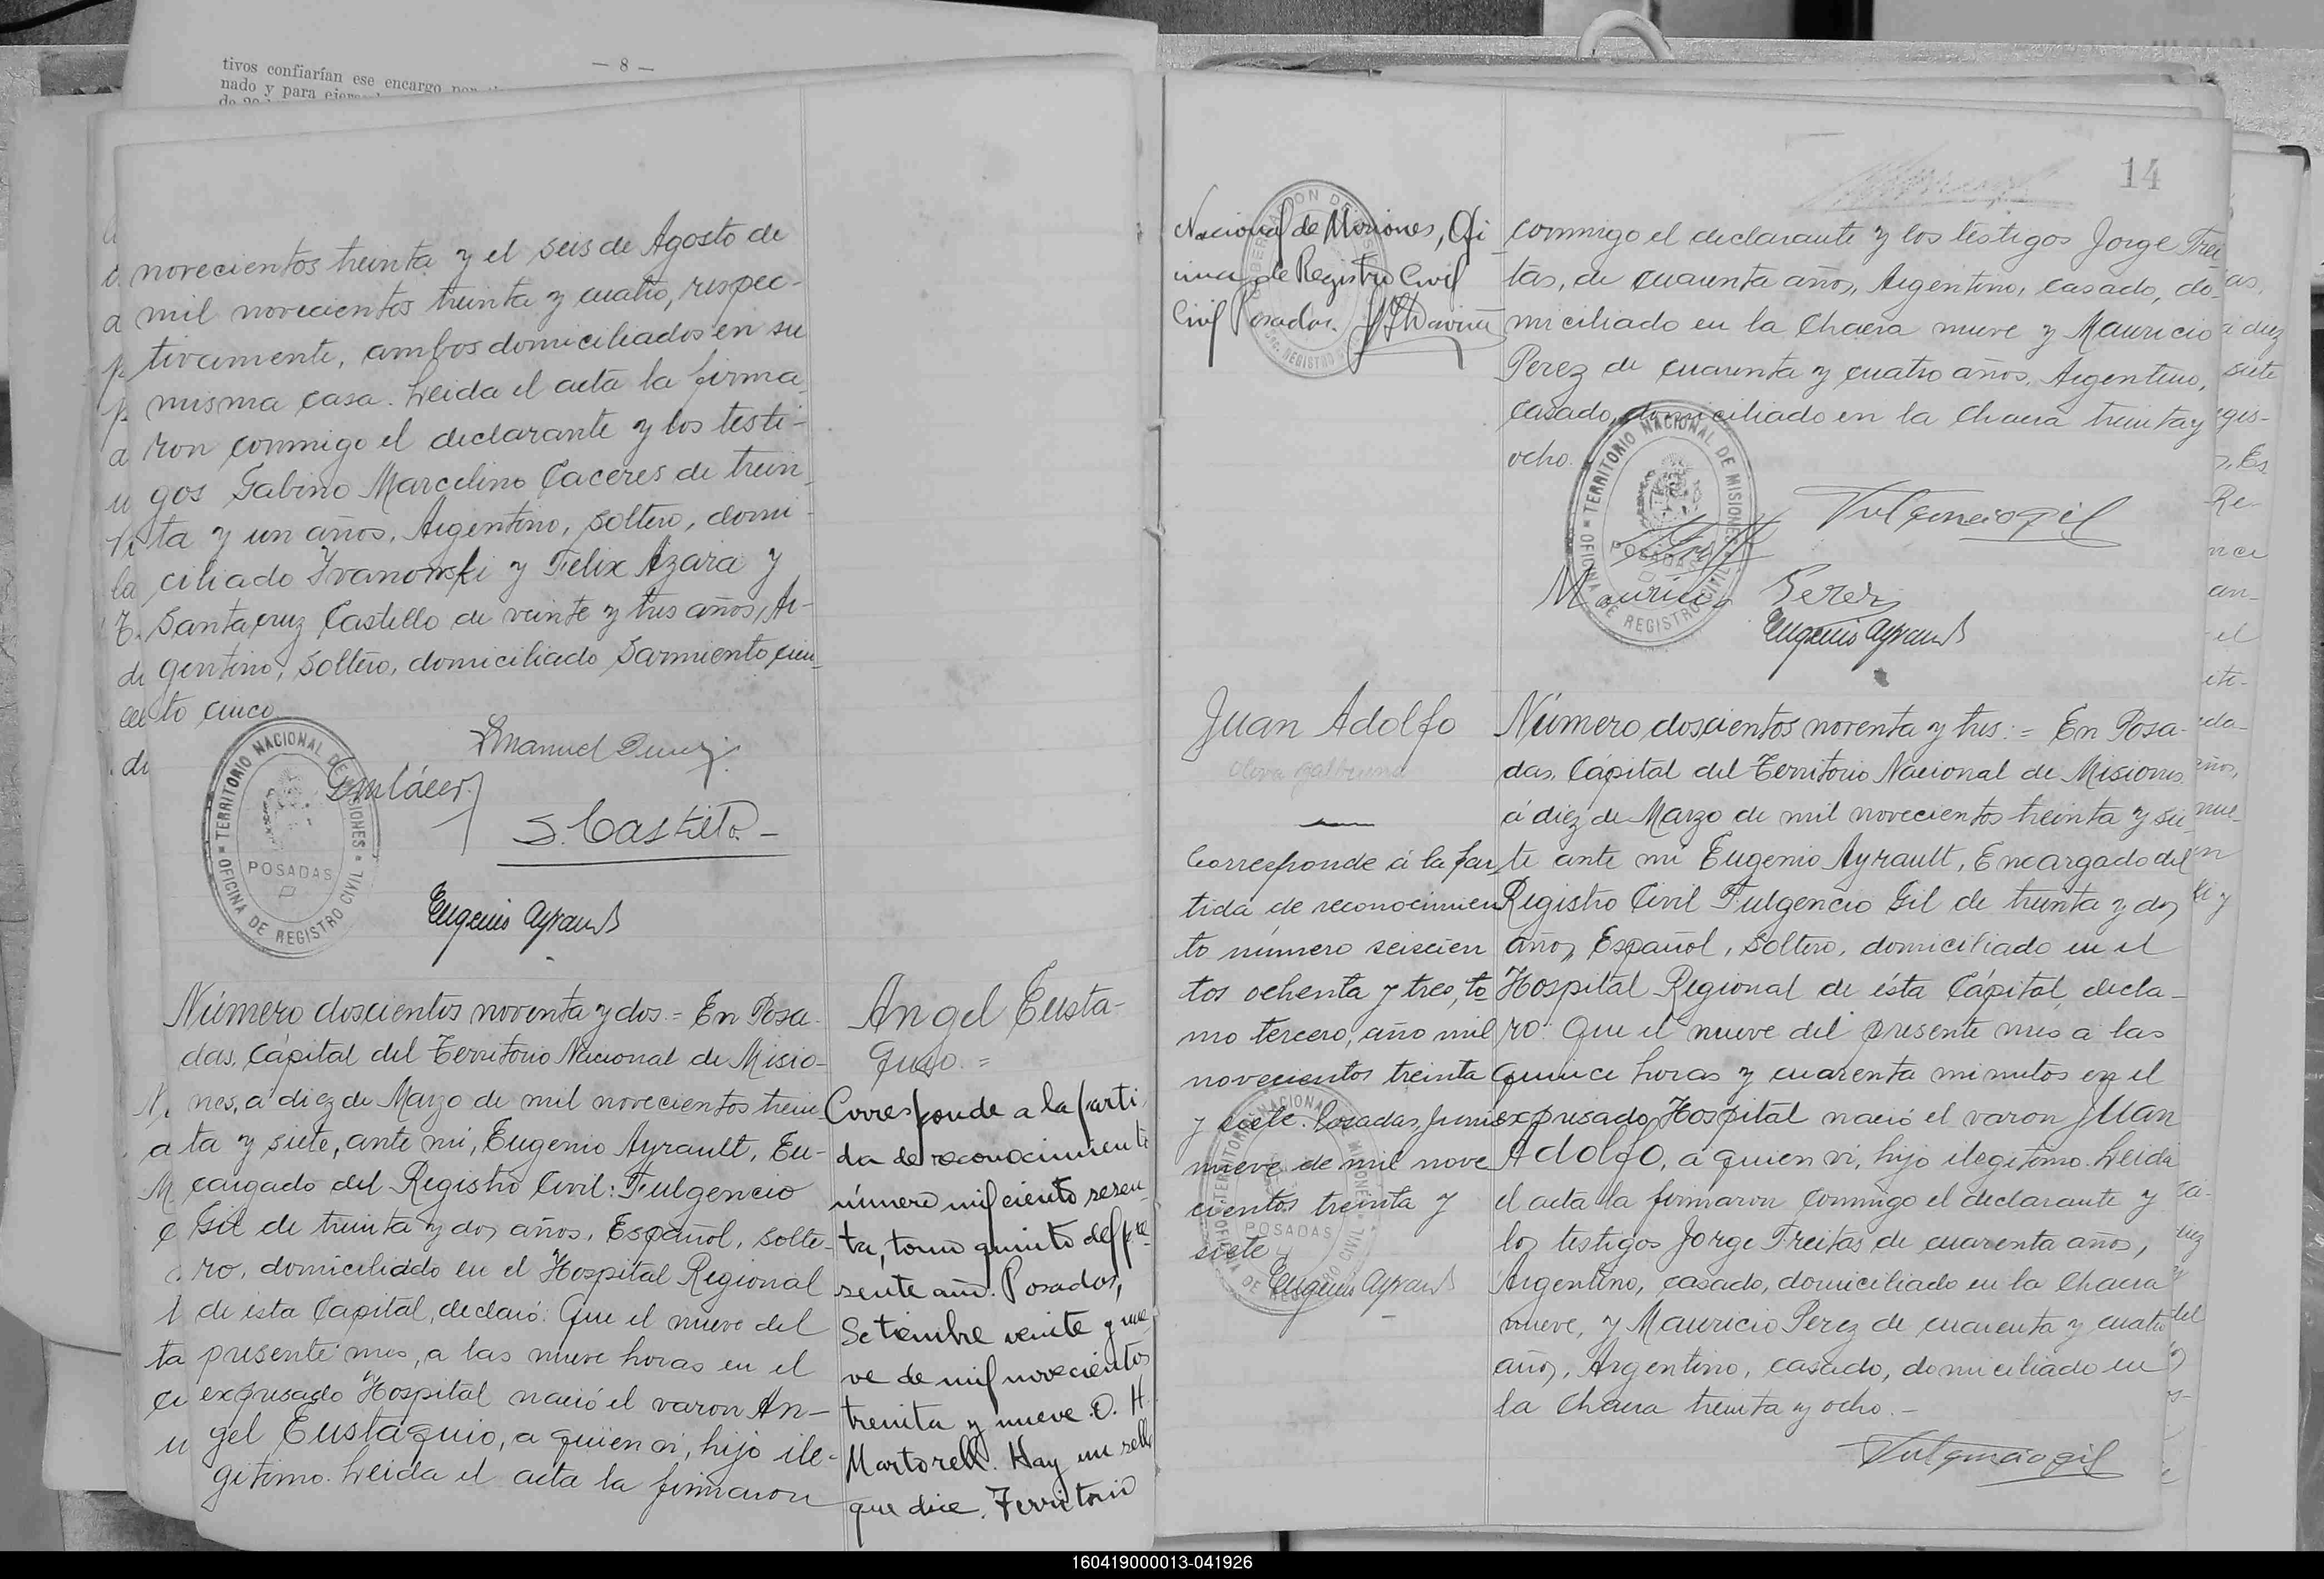 — 8 —
tivos confiarían ese encargo
nado y para
novecientos treinta y el seis de Agosto de
mil novecientos treinta y cuatro, respec-
tivamente, ambos domiciliados en su
misma casa. Leida el acta la firma
ron conmigo el declarante y los testi-
gos Gabino Marcelino Caceres de trein
ta y un años, Argentino, soltero, domi-
ciliado Ivanowski y Felix Azara y
Santacruz Castillo de veinte y tres años, Ar-
gentino, soltero, domiciliado Sarmiento cien
to cinco
TERRITORIO NACIONAL DE MISIONES
POSADAS
OFICINA DE REGISTRO CIVIL
S. Castillo
Eugenio Ayrault
Número doscientos noventa y dos = En Posa-
das, Cápital del Territorio Nacional de Misio-
nes, a diez de Marzo de mil novecientos trein
ta y siete, ante mi, Eugenio Ayrault, En-
cargado del Registro Civil: Fulgencio
Gil de treinta y dos años, Español, solte-
ro, domiciliado en el Hospital Regional
de esta Capital, declaró: Que el nueve del
presente mes, a las nueve horas en el
expresado Hospital nació el varon An-
gel Eustaquio, a quien vi, hijo ile-
gitimo. Leida el acta la firmaron
Angel Eusta-
quio. =
Corresponde a la parti
da de reconocimiento
número mil ciento sesen
ta, tomo quinto del pre-
sente año. Posadas,
Setiembre veinte y nue
ve de mil novecientos
treinta y nueve. O. H.
Martorell. Hay un sello
que dice. Territorio
14
Nacional de Misiones, Ofi
cina de Registro Civil
Civil Posadas.
conmigo el declarante y los testigos Jorge Frei
tas, de cuarenta años, Argentino, casado, do-
miciliado en la Chacra nueve y Mauricio
Perez de cuarenta y cuatro años, Argentino,
casado, domiciliado en la Chacra treinta y
ocho.
TERRITORIO NACIONAL DE MISIONES
POSADAS
OFICINA DE REGISTRO CIVIL
Fulgencio gil
Mauricio Perez
Eugenio Ayrault
Juan Adolfo
Corresponde á la par
tida de reconocimien
to número seiscien
tos ochenta y tres, to
mo tercero, año mil
novecientos treinta
y siete. Posadas, Junio
nueve de mil nove
cientos treinta y
siete
POSADAS
Eugenio Ayrault
Número doscientos noventa y tres: = En Posa-
das, Cápital del Territorio Nacional de Misiones
á diez de Marzo de mil novecientos treinta y sie
te ante mi Eugenio Ayrault, Encargado del
Registro Civil Fulgencio Gil de treinta y dos
años, Español, soltero, domiciliado en el
Hospital Regional de ésta Cápital, decla-
ro: Que el nueve del presente mes a las
quince horas y cuarenta minutos en el
expresado Hospital nació el varon Juan
Adolfo, a quien vi, hijo ilegitimo. Leida
el acta la firmaron conmigo el declarante y
los testigos Jorge Freitas de cuarenta años,
Argentino, casado, domiciliado en la Chacra
nueve, y Mauricio Perez de cuarenta y cuatro
años, Argentino, casado, domiciliado en
la Chacra treinta y ocho. -
Fulgencio gil
160419000013-041926